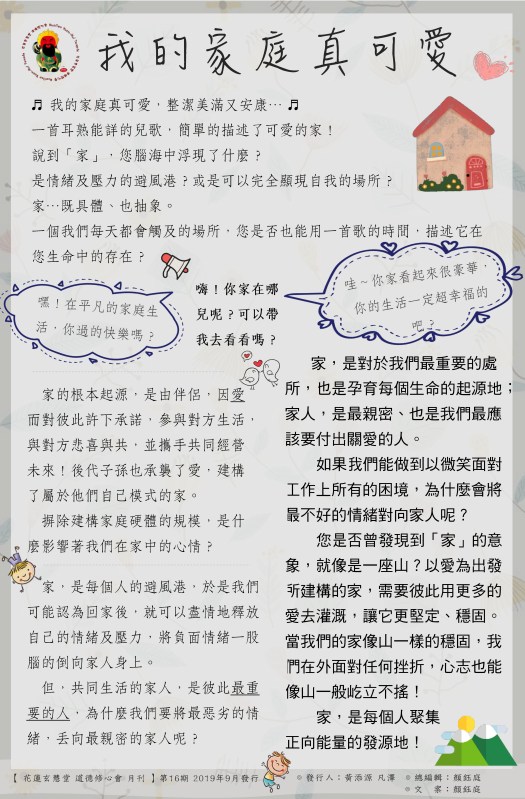 我的家庭真可愛
♬ 我的家庭真可愛，整潔美滿又安康… ♬
一首耳熟能詳的兒歌，簡單的描述了可愛的家！
說到「家」，您腦海中浮現了什麼？
是情緒及壓力的避風港？或是可以完全顯現自我的場所？
家…既具體、也抽象。
一個我們每天都會觸及的場所，您是否也能用一首歌的時間，描述它在
您生命中的存在？
嘿！在平凡的家庭生
活，你過的快樂嗎？
嗨！你家在哪
兒呢？可以帶
我去看看嗎？
哇～你家看起來很豪華，
你的生活一定超幸福的
吧？
家的根本起源，是由伴侶，因愛
而對彼此許下承諾，參與對方生活，
與對方悲喜與共，並攜手共同經營
未來！後代子孫也承襲了愛，建構
了屬於他們自己模式的家。
摒除建構家庭硬體的規模，是什
麼影響著我們在家中的心情？
家，是每個人的避風港，於是我們
可能認為回家後，就可以盡情地釋放
自己的情緒及壓力，將負面情緒一股
腦的倒向家人身上。
但，共同生活的家人，是彼此最重
要的人，為什麼我們要將最惡劣的情
緒，丟向最親密的家人呢？
家，是對於我們最重要的處
所，也是孕育每個生命的起源地；
家人，是最親密、也是我們最應
該要付出關愛的人。
如果我們能做到以微笑面對
工作上所有的困境，為什麼會將
最不好的情緒對向家人呢？
您是否曾發現到「家」的意
象，就像是一座山？以愛為出發
所建構的家，需要彼此用更多的
愛去灌溉，讓它更堅定、穩固。
當我們的家像山一樣的穩固，我
們在外面對任何挫折，心志也能
像山一般屹立不搖！
家，是每個人聚集
正向能量的發源地！
【 花蓮玄懸堂 道德修心會 月刊 】第16期 2019年9月發行
※發行人：黃添源 凡澤
※總編輯：顏鈺庭
※文 案：顏鈺庭